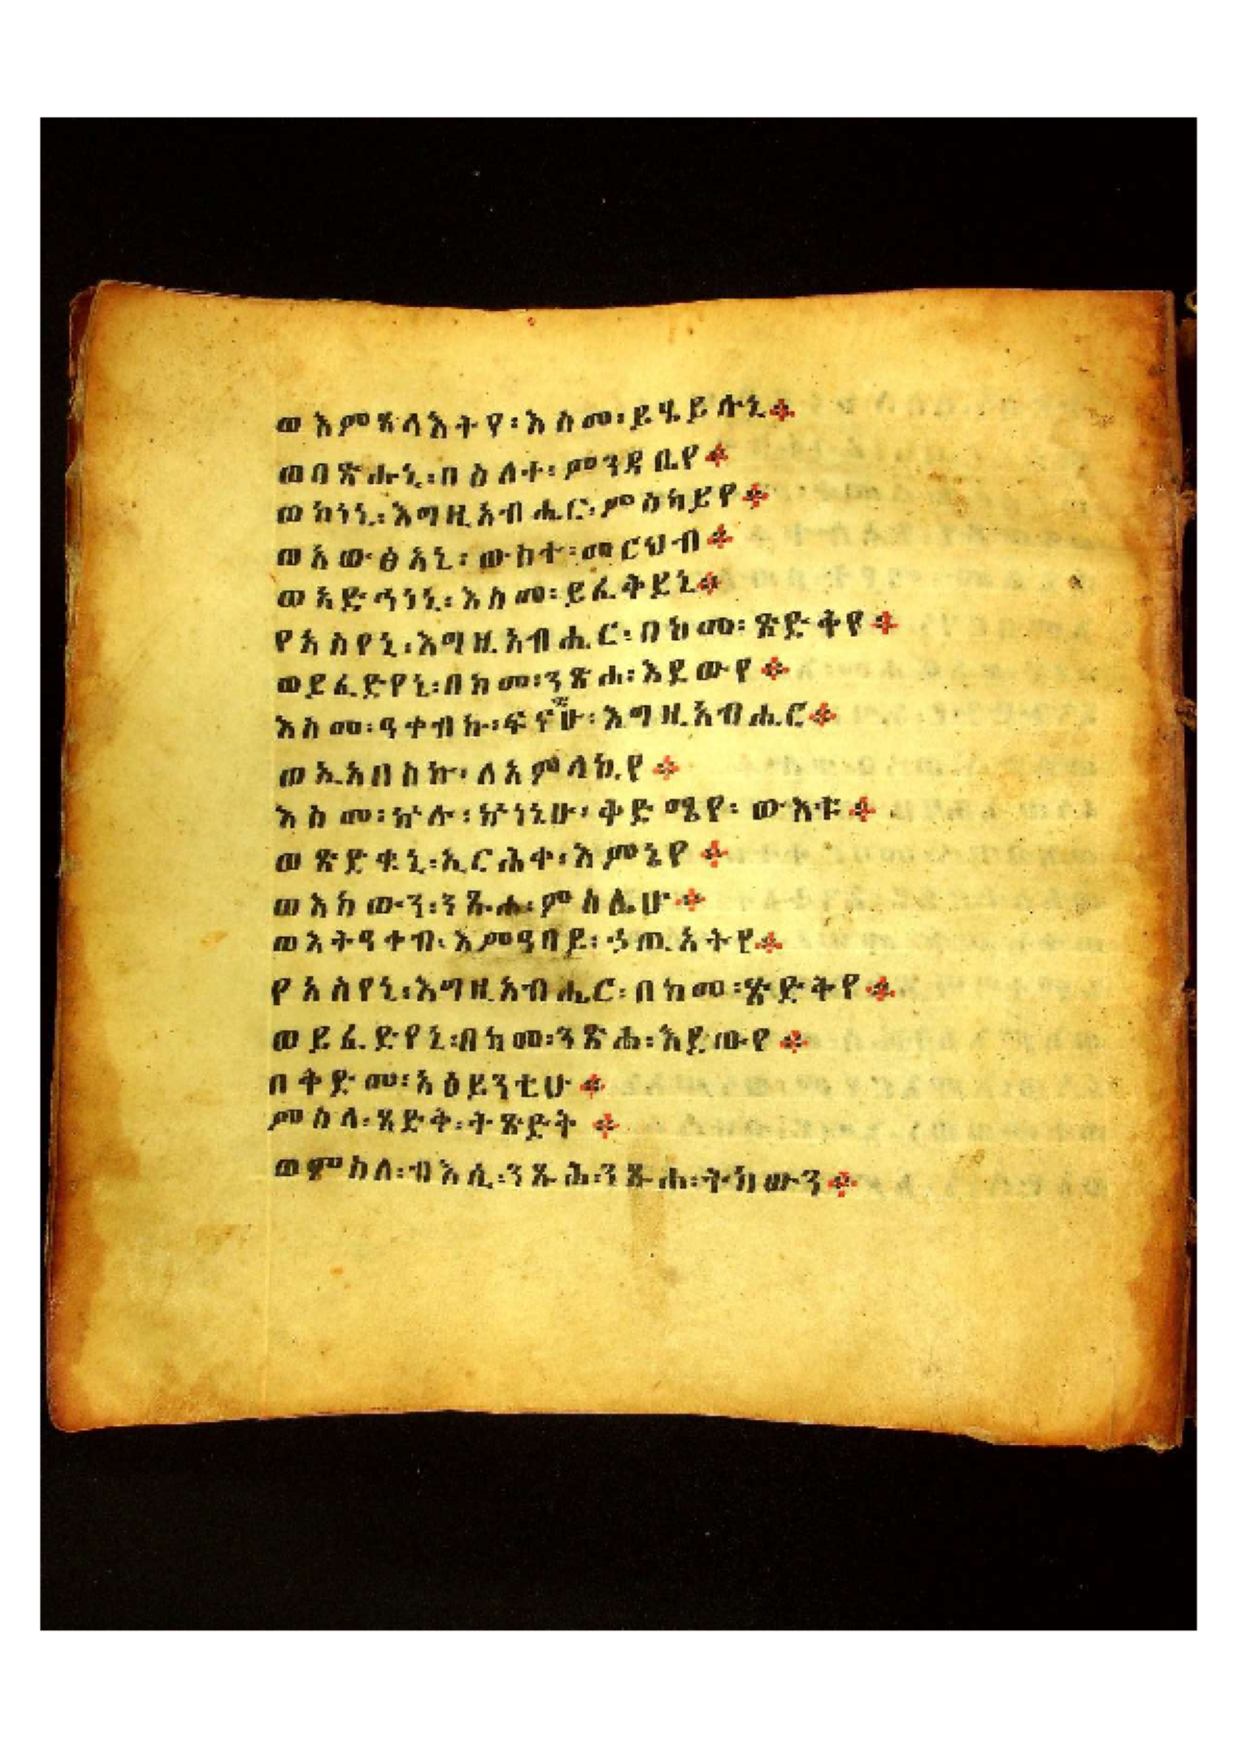 ወእምጸላእትየ፡እስመ፡ይኄይሉኒ፨
ወበጽሑኒ፡በዕለተ፡ምንዳቤየ፨
ወኮነኒ፡እግዚአብሔር፡ምስካይየ፨
ወአውፅአኒ፡ውስተ፡መርህብ፨
ወአድኀነኒ፡እስመ፡ይፈቅደኒ፨
የአስየኒ፡እግዚአብሔር፡በከመ፡ጽድቅየ፨
ወይፈድየኒ፡በከመ፡ንጽሐ፡እደውየ፨
እስመ፡ዓቀብኩ፡ፍናዊሁ፡እግዚአብሔር፨
ወኢአበስኩ፡ለአምላኪየ፨
እስመ፡ኵሉ፡ኵነኔሁ፡ቅድሜየ፡ውእቱ፨
ወጽድቁኒ፡ኢርሕቀ፡እምኔየ፨
ወእከውን፡ንጹሐ፡ምስሌሁ፨
ወእትዓቀብ፡እምዓበይ፡ኃጢአትየ፨
የአስየኒ፡እግዚአብሔር፡በከመ፡ጽድቅየ፨
ወይፈድየኒ፡በከመ፡ንጽሐ፡እደውየ፨
በቅድመ፡አዕይንቲሁ፨
ምስለ፡ጻድቅ፡ትጸድቅ፨
ወምስለ፡ብእሲ፡ንጹሕ፡ንጹሐ፡ትከውን፨